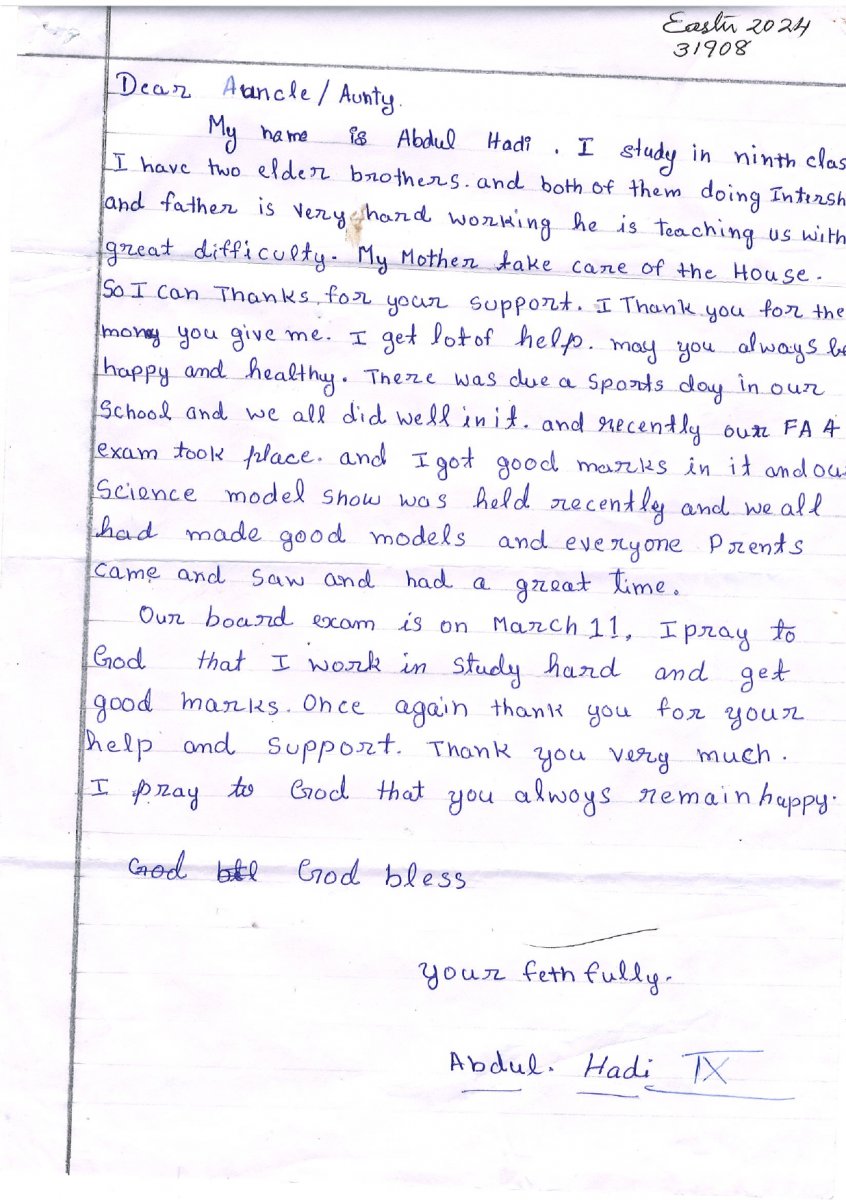 Easter 2024
31908
Dear Auncle / Aunty.
My name is Abdul Hadi . I study in ninth clas
I have two elder brothers. and both of them doing Intersh
and father is very hard working he is teaching us with
great difficulty. My Mother take care of the House.
So I can Thanks for your support. I Thank you for the
mony you give me. I get lot of help. may you always be
happy and healthy. There was due a sports day in our
School and we all did well in it. and recently our FA 4
exam took place. and I got good marks in it and ou
Science model show was held recently and we all
had made good models and everyone Prents
came and saw and had a great time.
Our board exam is on March 11, I pray to
God that I work in study hard and get
good marks. Once again thank you for your
help and support. Thank you very much.
I pray to God that you always remain happy.
God God bless
your fethfully.
Abdul. Hadi IX